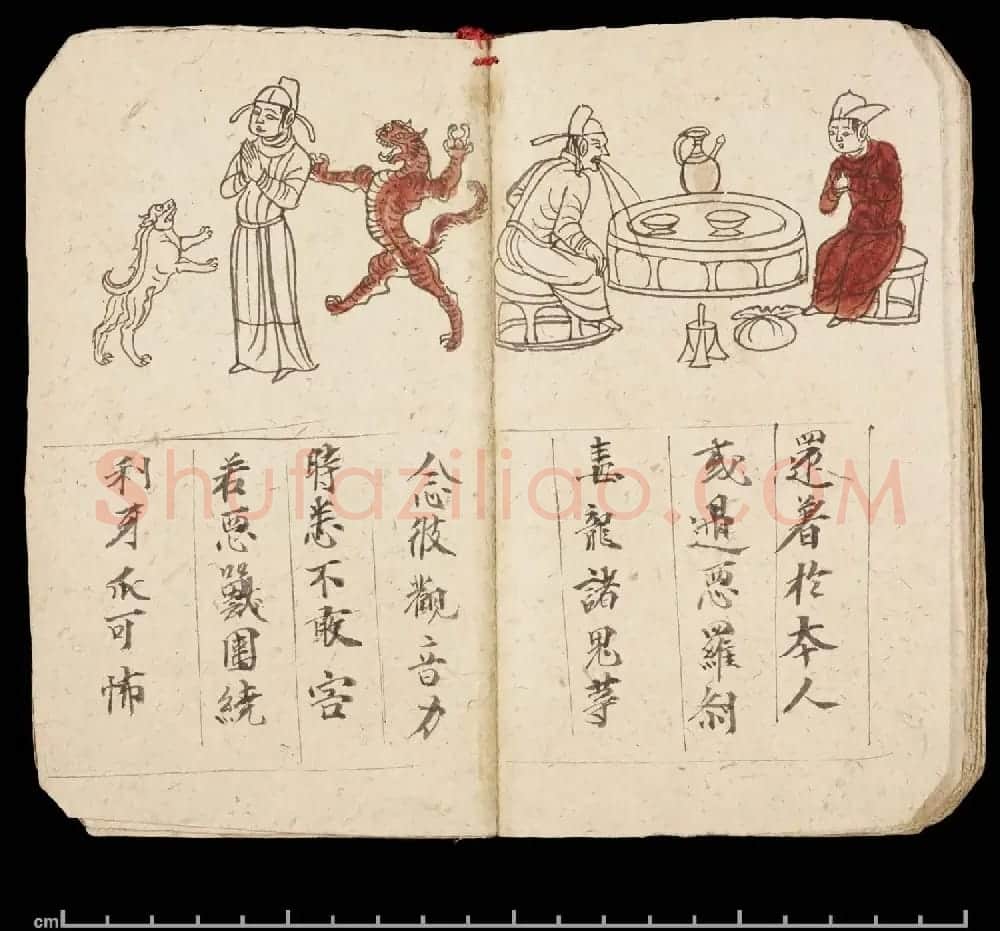 還著扵本人
或遇悪羅剎
毒龍諸鬼等
念彼觀音力
時悉不敢害
若悪獸圍繞
利牙爪可怖
Shufaziliao.COM
cm